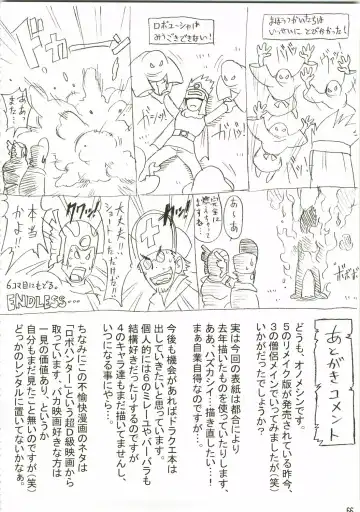 まほうつかいたちは
いっせいに とびかかった!
ロボユーシャは
みうごきできない!
ドカァーン
ガバッ
ガバァ
あ〜あ
大丈夫!!
クワッ!
クワッ!
本当
かよ!!
6コマ目にもどる。
ENDLESS...
あとがきコメント
どうも、オノメシンです。
5のリメイク版が発売されている昨今、
3の僧侶メインでいってみましたが(笑)
いかがだったでしょうか?
実は今回の表紙は都合により
去年描いたものを使っていたりします、
ああっハズカシイ…!描き直したい…!
まぁ自業自得なのですが…。
今後も機会があればドラクエ本は
出していきたいと思っています。
個人的には6のミレーユやバーバラも
結構好きだったりするのですが
4のキャラ達もまだ描いてませんし、
いつになる事にやら…。
ちなみにこの不愉快漫画のネタは
「ロボハンター」という超D級映画から
取っています、バカ映画好きな方は
一見の価値あり、というか
自分もまだ見たこと無いのですが(笑)
どっかのレンタルに置いてないかなぁ。